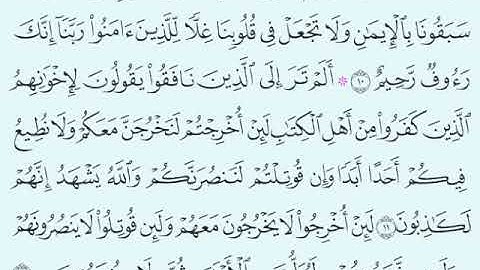 سَبَقُونَا بِٱلْإِيمَٰنِ وَلَا تَجْعَلْ فِى قُلُوبِنَا غِلًّا لِّلَّذِينَ ءَامَنُوا۟ رَبَّنَآ إِنَّكَ
رَءُوفٌ رَّحِيمٌ ١٠ * أَلَمْ تَرَ إِلَى ٱلَّذِينَ نَافَقُوا۟ يَقُولُونَ لِإِخْوَٰنِهِمُ
ٱلَّذِينَ كَفَرُوا۟ مِنْ أَهْلِ ٱلْكِتَٰبِ لَئِنْ أُخْرِجْتُمْ لَنَخْرُجَنَّ مَعَكُمْ وَلَا نُطِيعُ
فِيكُمْ أَحَدًا أَبَدًا وَإِن قُوتِلْتُمْ لَنَنصُرَنَّكُمْ وَٱللَّهُ يَشْهَدُ إِنَّهُمْ
لَكَٰذِبُونَ ١١ لَئِنْ أُخْرِجُوا۟ لَا يَخْرُجُونَ مَعَهُمْ وَلَئِن قُوتِلُوا۟ لَا يَنصُرُونَهُمْ